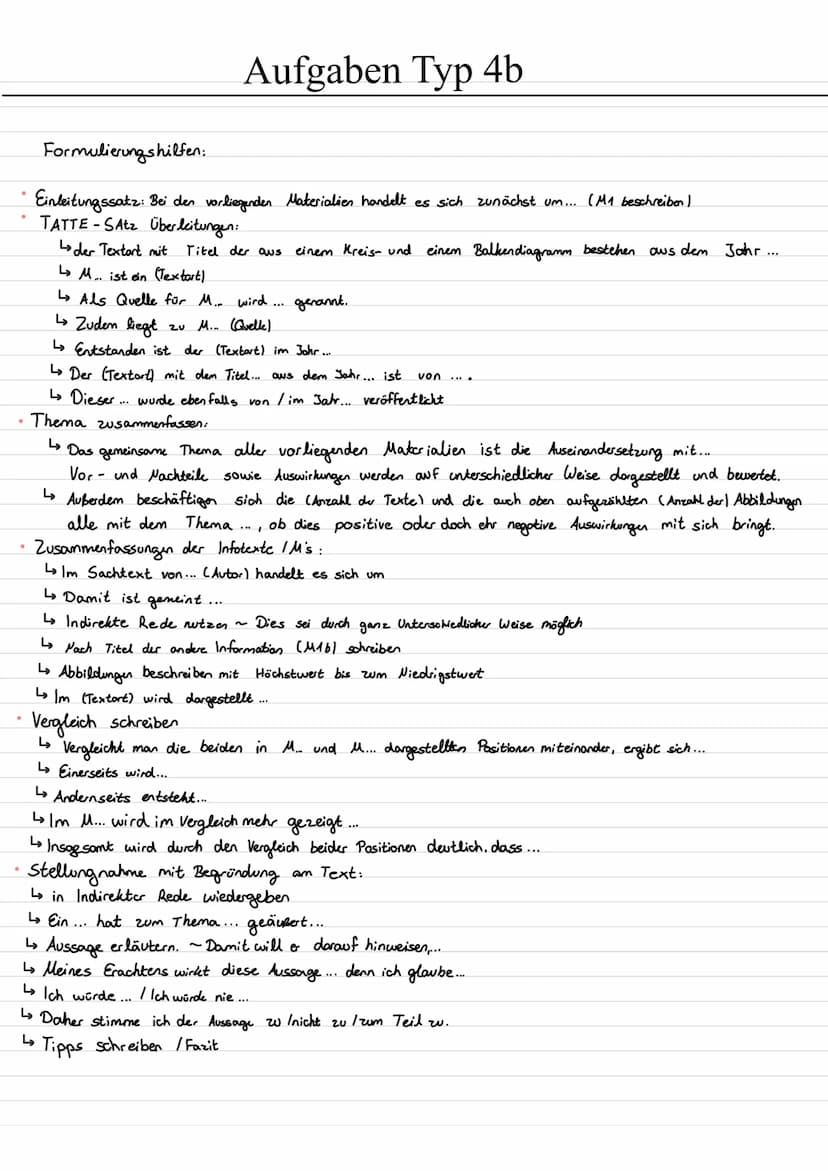 Aufgaben Typ 4b
Formulierungshilfen:
• Einleitungssatz: Bei den vorliegenden Materialien handelt es sich zunächst um... (M1 beschreiben)
• TATTE-SAtz Überleitungen:
↳ der Textart mit Titel der aus einem Kreis- und einem Balkendiagramm bestehen aus dem Jahr ...
↳ M... ist ein (Textart)
↳ Als Quelle für M... wird ... genannt.
↳ Zudem liegt zu M... (Quelle)
↳ Entstanden ist der (Textart) im Jahr...
↳ Der (Textart) mit dem Titel... aus dem Jahr... ist von ....
↳ Dieser ... wurde ebenfalls von / im Jahr... veröffentlicht
• Thema zusammenfassen:
↳ Das gemeinsame Thema aller vorliegenden Materialien ist die Auseinandersetzung mit...
Vor- und Nachteile sowie Auswirkungen werden auf unterschiedlicher Weise dargestellt und bewertet.
↳ Außerdem beschäftigen sich die (Anzahl der Texte) und die auch oben aufgezählten (Anzahl der) Abbildungen
alle mit dem Thema ..., ob dies positive oder doch ehr negative Auswirkungen mit sich bringt.
• Zusammenfassungen der Infotexte / M's:
↳ Im Sachtext von... (Autor) handelt es sich um
↳ Damit ist gemeint ...
↳ Indirekte Rede nutzen ~ Dies sei durch ganz Unterschiedlicher Weise möglich
↳ Nach Titel der andere Information (M1b) schreiben
↳ Abbildungen beschreiben mit Höchstwert bis zum Niedrigstwert
↳ Im (Textart) wird dargestellt ...
• Vergleich schreiben
↳ Vergleicht man die beiden in M... und M... dargestellten Positionen miteinander, ergibt sich...
↳ Einerseits wird...
↳ Andernseits entsteht...
↳ Im M... wird im Vergleich mehr gezeigt ...
↳ Insgesamt wird durch den Vergleich beider Positionen deutlich, dass ...
• Stellungnahme mit Begründung am Text:
↳ in Indirekter Rede wiedergeben
↳ Ein ... hat zum Thema ... geäußert...
↳ Aussage erläutern. ~ Damit will er darauf hinweisen,...
↳ Meines Erachtens wirkt diese Aussage ... denn ich glaube...
↳ Ich würde ... / Ich würde nie ...
↳ Daher stimme ich der Aussage zu /nicht zu / zum Teil zu.
↳ Tipps schreiben / Fazit